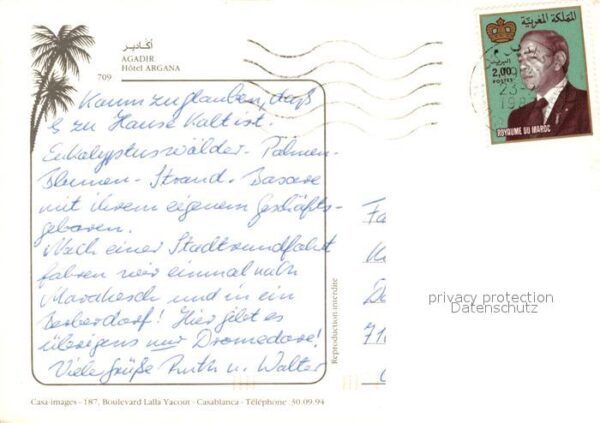 أكادير
AGADIR
Hôtel ARGANA
709
Kaum zu glauben, daß
es zu Hause kalt ist.
Eukalyptuswälder - Palmen-
Blumen - Strand - Basare
mit ihrem eigenem Geschäfts-
gebaren.
Nach einer Stadtrundfahrt
fahren wir einmal nach
Marakesch und in ein
Berberdorf! Hier gibt es
übrigens nur Dromedare!
Viele Grüße Ruth u. Walter
Reproduction interdite
Casa-images - 187, Boulevard Lalla Yacout - Casablanca - Téléphone : 30.09.94
المملكة المغربية
البريد
2,00
POSTES
ROYAUME DU MAROC
23
privacy protection
Datenschutz